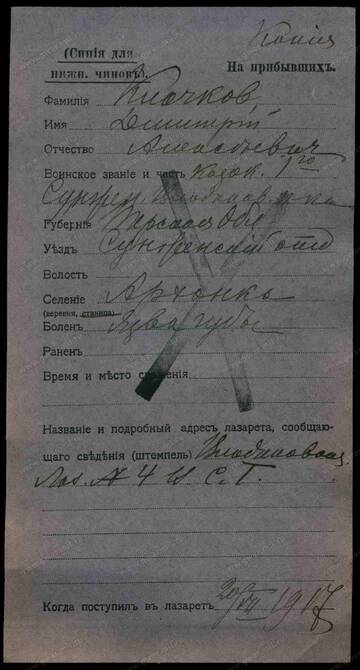 Копия
(Синія для
нижн. чиновъ).
На прибывшихъ.
Фамилія Клочков
Имя Димитрій
Отчество Афанасьевич
Воинское званіе и часть Казак. 1го
Сунжен.
Губернія Терская Обл
Уѣздъ Сунженскій отд
Волость
Селеніе Архонка
(деревня, станица)
Боленъ Язва губы
Раненъ
Время и мѣсто сраженія
Названіе и подробный адресъ лазарета, сообщаю-
щаго свѣдѣнія (штемпель)
Лаз. № 4 И. С. Г.
Когда поступилъ въ лазаретъ 20/VII 1917